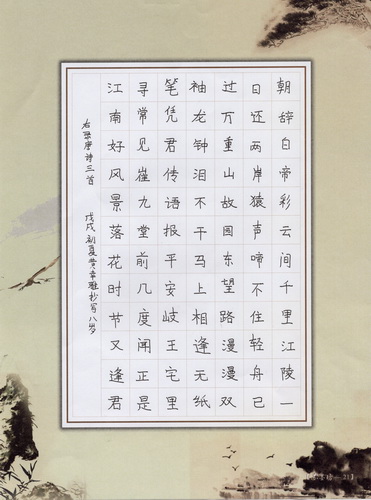 朝辞白帝彩云间千里江陵一
日还两岸猿声啼不住轻舟已
过万重山故园东望路漫漫双
袖龙钟泪不干马上相逢无纸
笔凭君传语报平安岐王宅里
寻常见崔九堂前几度闻正是
江南好风景落花时节又逢君
右录唐诗三首 戊戌初夏黄抄写八岁